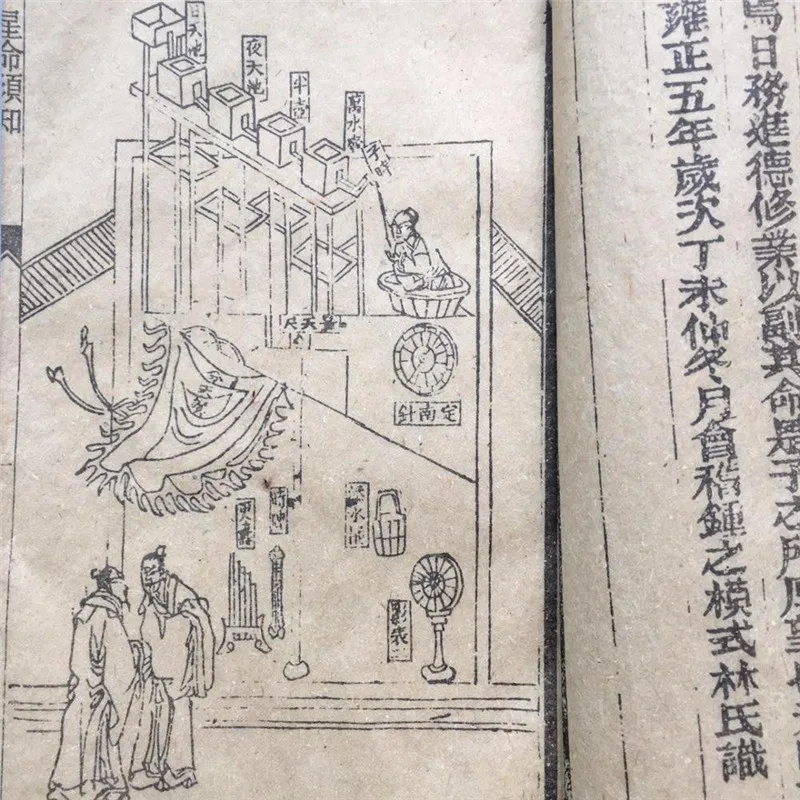 爲日務進德修業以副其命是子之所厚望也
雍正五年歲次丁未仲冬月會稽鍾之模式林氏識
萬水壺
平壺
夜天池
日天池
子時
量天尺
定南針
水
時
更
影表
星命須知